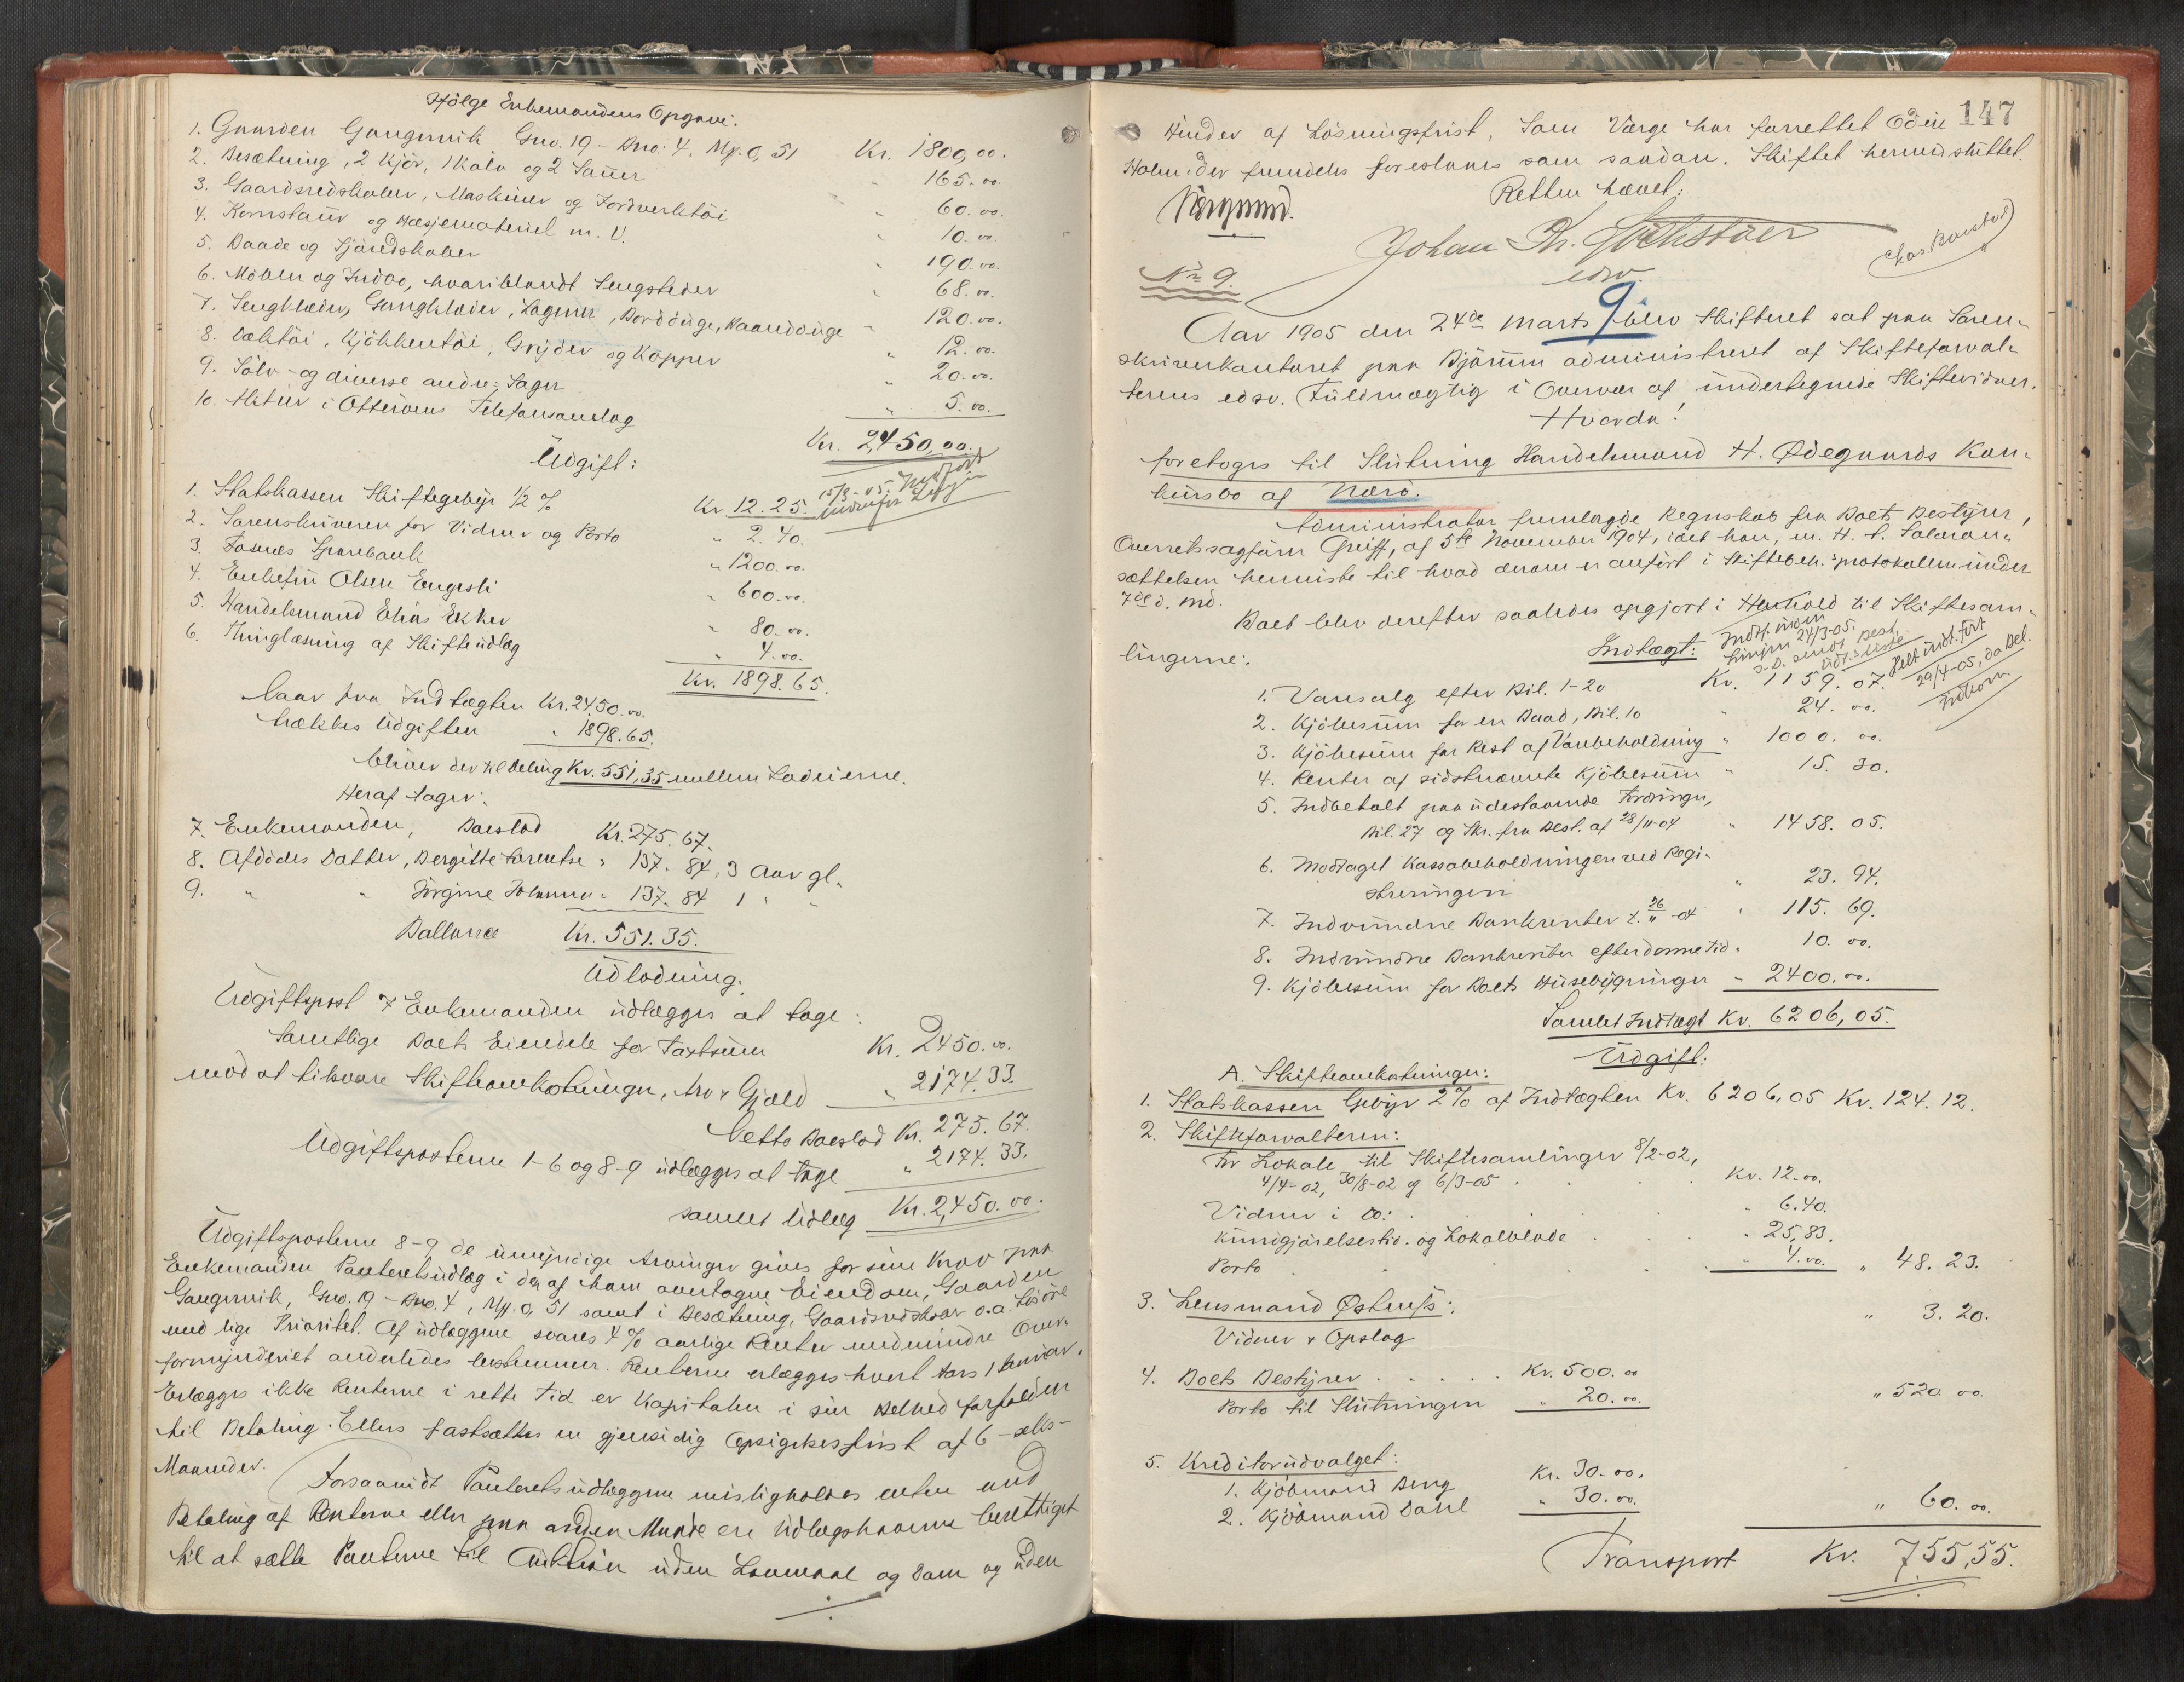 Ifølge Enkemandens Opgave:
1. Gaarden Gangmik Gno. 19 - Bno: 4. Mp. 0,51 Kr. 1800,00.
2. Besætning, 2 Kjør, 1 Kalv og 2 Sauer " 165.00
3. Gaardsredskaber, Maskiner og Jordverktøi " 60.00.
4. Kornstaur og Hæsjemateriel m. V. " 10.00
5. Baade og Sjøredskaber " 190.00.
6. Møbler og Indbo, hvoriblandt Sengsteder " 68.00.
7. Sengklæder, Gangklæder, Lagener, Bordduge, Haandduge " 120.00.
8. Dæktøi, Kjøkkentøi, Gryder og Kopper " 12.00.
9. Sølv- og diverse andre Sager " 20.00.
10. Aktier i Otterøens Telefonanlæg " 5.00.
Kr. 2,450,00.
Udgift:
15/3-05.
1. Statskassen Skiftegebyr 1/2 % Kr. 12.25.
2. Sorenskriveren for Vidner og Porto " 2.40.
3. Fosnæs Sparebank " 1200.00.
4. Enkefru Olsen Engesli " 600.00.
5. Handelsmand Elias Ekker " 80.00.
6. Thinglæsning af Skifteudlæg " 4.00.
Kr. 1898.65.
Naar fra Indtægten Kr. 2450.00.
trækkes Udgiften " 1898.65.
bliver der til Deling Kr. 551,35 mellem Lodeierne.
Heraf tager:
7. Enkemanden, Boeslod Kr. 275.67.
8. Afdødes Datter, Bergitte Lorentse " 137.84, 3 Aar gl.
9. " " Jørgine Johanna " 137.84 1 " "
Ballance Kr. 551.35.
Udlodning.
Udgiftspost 7 Enkemanden udlægges at tage:
Samtlige Boets Eiendele for Taxtsum Kr. 2450.00.
mod at tilsvare Skifteomkostninger, Arv & Gjæld " 2174.33.
Netto Boeslod Kr. 275.67.
Udgiftsposterne 1-6 og 8-9 udlægges at tage " 2174.33.
samlet Udlæg Kr. 2,450.00.
Udgiftsposterne 8-9 de umyndige Arvinger gives for sine Krav paa
Enkemanden Panteretsudlæg i den af ham overtagne Eiendom, Gaarden
Gangmik, Gno. 19 - Bno. 4, Mp. 0,51 samt i Besætning, Gaardsredskaber o.a. Løsøre
med lige Prioritet. Af udlæggene svares 4% aarlige Renter medmindre Over-
formynderiet anderledes bestemmer. Renterne erlægges hvert Aars 1 Januar.
Erlægges ikke Renterne i rette Tid er Kapitalen i sin Helhed forfalden
til Betaling. Ellers fastsættes en gjensidig Opsigelsesfrist af 6 - seks -
Maaneder.
Forsaavidt Panteretsudlæggene misligholdes enten ved
Betaling af Renterne eller paa anden Maade ere Udlægshaverne berettiget
til at sætte Panterne til Auktion uden Lovmaal og Dom og uden
147
Hinder af Løsningsfrist. Som Værge har forrettet Odin
Holm der fremdeles foreslaaes som saadan. Skiftet hermed sluttet.
Retten hævet:
Johan Chr.
edsv.
No 9.
9
Aar 1905 den 24de Marts blev Skifteret sat paa Soren-
skriverkontoret paa Bjørum administreret af Skifteforval-
terens edsv. Fuldmægtig i Overvær af undertegnede Skiftevidner.
Hvorda!
foretoges til Slutning Handelsmand H. Ødegaards Kon-
kursbo af Nærø.
Administrator fremlagde Regnskab fra Boets Bestyrer,
Overretssagfører Greiff, af 5te November 1904, idet han, m. H. t. Salæran-
sættelsen henviste til hvad derom er anført i Skiftebeh. protokollen under
7de d. Md.
Boet blev derefter saaledes opgjort i Henhold til Skiftesam-
lingerne:
Indtægt:
24/3-05.
29/4-05, da Bel.
1. Varesalg efter Bil. 1-20 Kr. 1159.07.
2. Kjøbesum for en Baad, Bil. 10 " 24.00.
3. Kjøbesum for Rest af Varebeholdning " 1000.00.
4. Renter af sidstnævnte Kjøbesum " 15.30.
5. Indbetalt paa udestaaende Fordringer,
Bil. 27 og Skr. fra Best. af 28/11-04 " 1458.05.
6. Modtaget Kassabeholdningen ved Regi-
streringen " 23.94.
7. Indvundne Bankrenter t. 26/11-04 " 115.69.
8. Indvundne Bankrenter efter denne Tid " 10.00.
9. Kjøbesum for Boets Husebygninger " 2400.00.
Samlet Indtægt Kr. 6206,05.
Udgift:
A. Skifteomkostninger:
1. Statskassen Gebyr 2% af Indtægten Kr. 6206,05 Kr. 124.12.
2. Skifteforvalteren:
For Lokale til Skiftesamlinger 8/2-02,
4/4-02, 30/8-02 og 6/3-05 Kr. 12.00.
Vidner i Do: " 6.40.
Kundgjørelsestid. og Lokalblade " 25,83.
Porto " 4.00. " 48.23.
3. Lensmand Østnes:
Vidner & Opslag " 3.20.
4. Boets Bestyrer Kr. 500.00
Porto til Slutningen " 20.00. " 520.00.
5. Kreditorudvalget:
1. Kjøbmand Berg Kr. 30.00.
2. Kjøbmand Dahl " 30.00. " 60.00.
Transport Kr. 755,55.